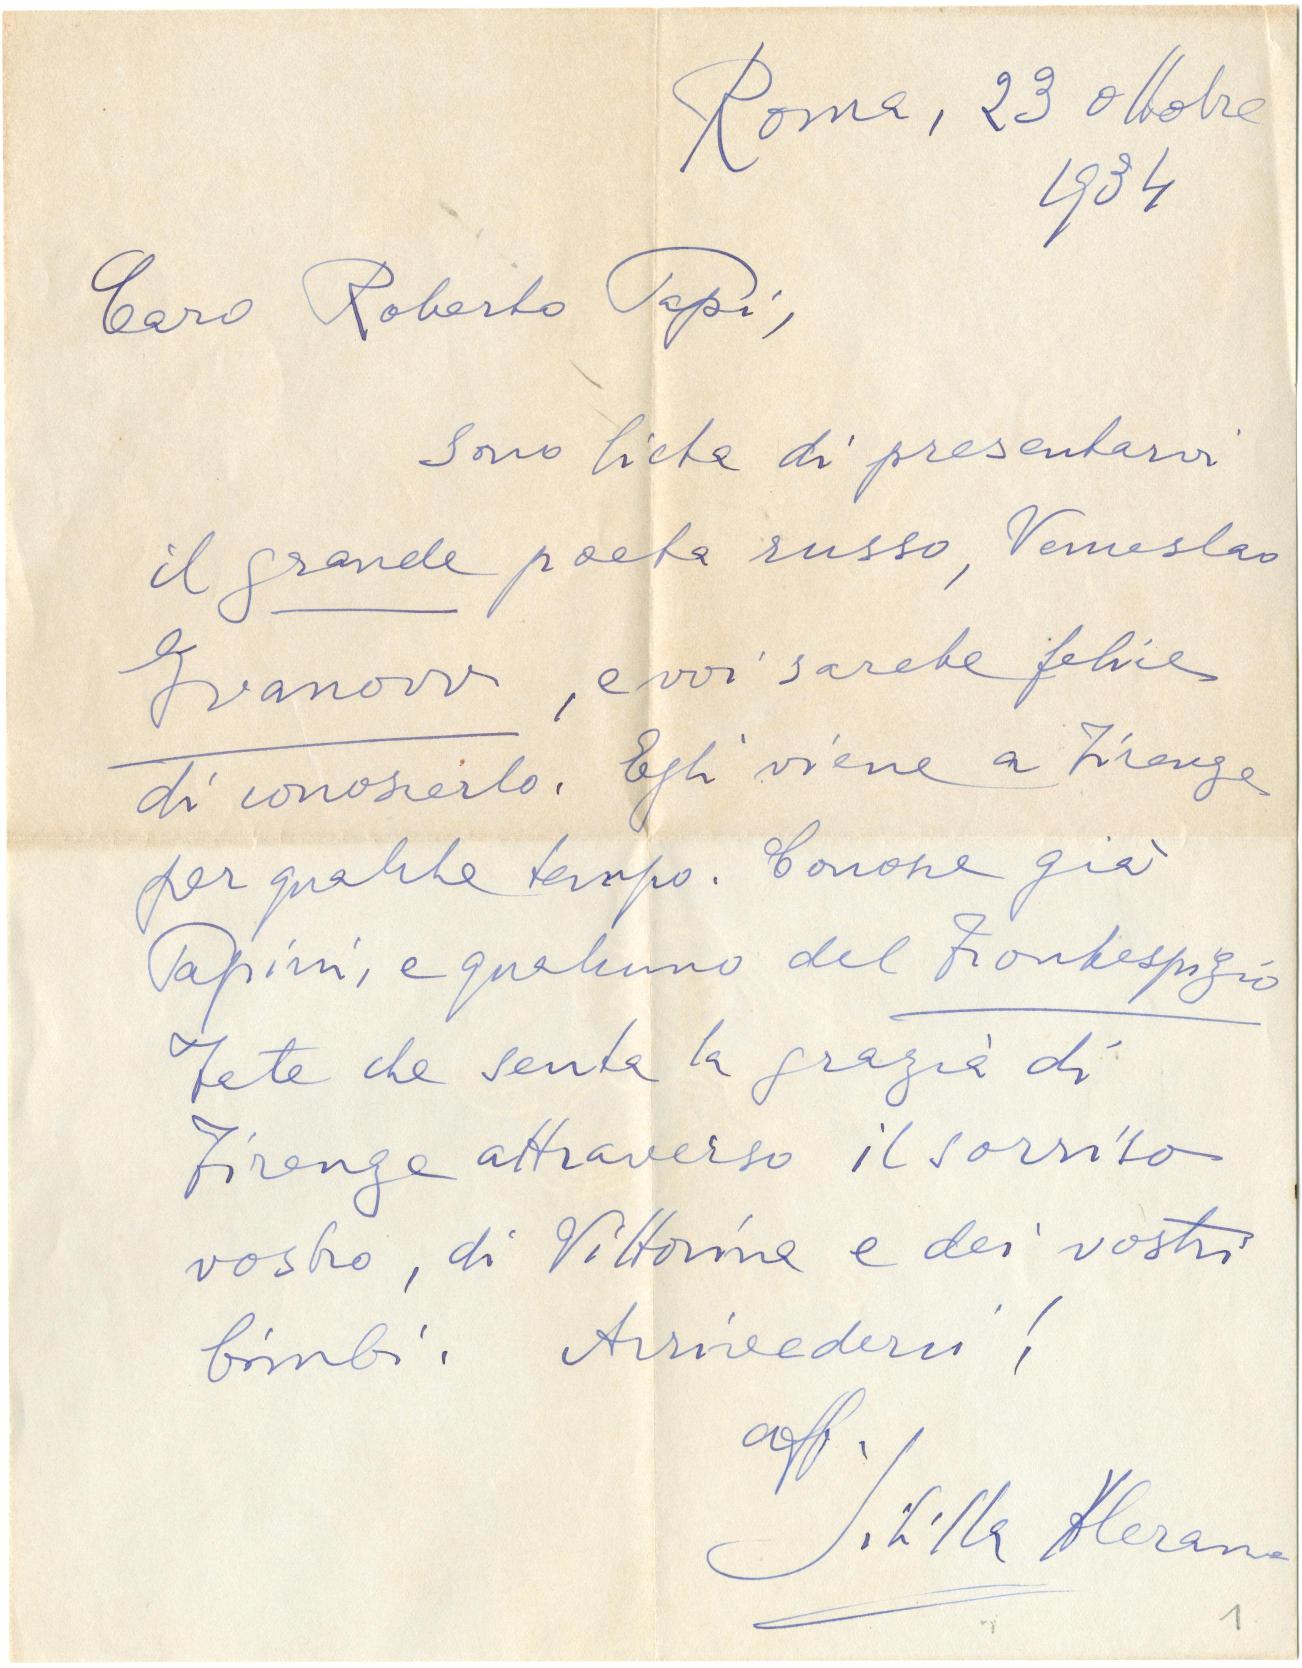 Roma, 23 ottobre
1934
Caro Roberto Papi,
sono lieta di presentarvi
il grande poeta russo, Venceslao
Ivanow, e voi sarete felice
di conoscerlo. Egli viene a Firenze
per qualche tempo. Conosce già
Papini, e qualcuno del Frontespizio
Fate che senta la grazia di
Firenze attraverso il sorriso
vostro, di Vittorina e dei vostri
bimbi. Arrivederci!
aff.
Sibilla Aleramo
1